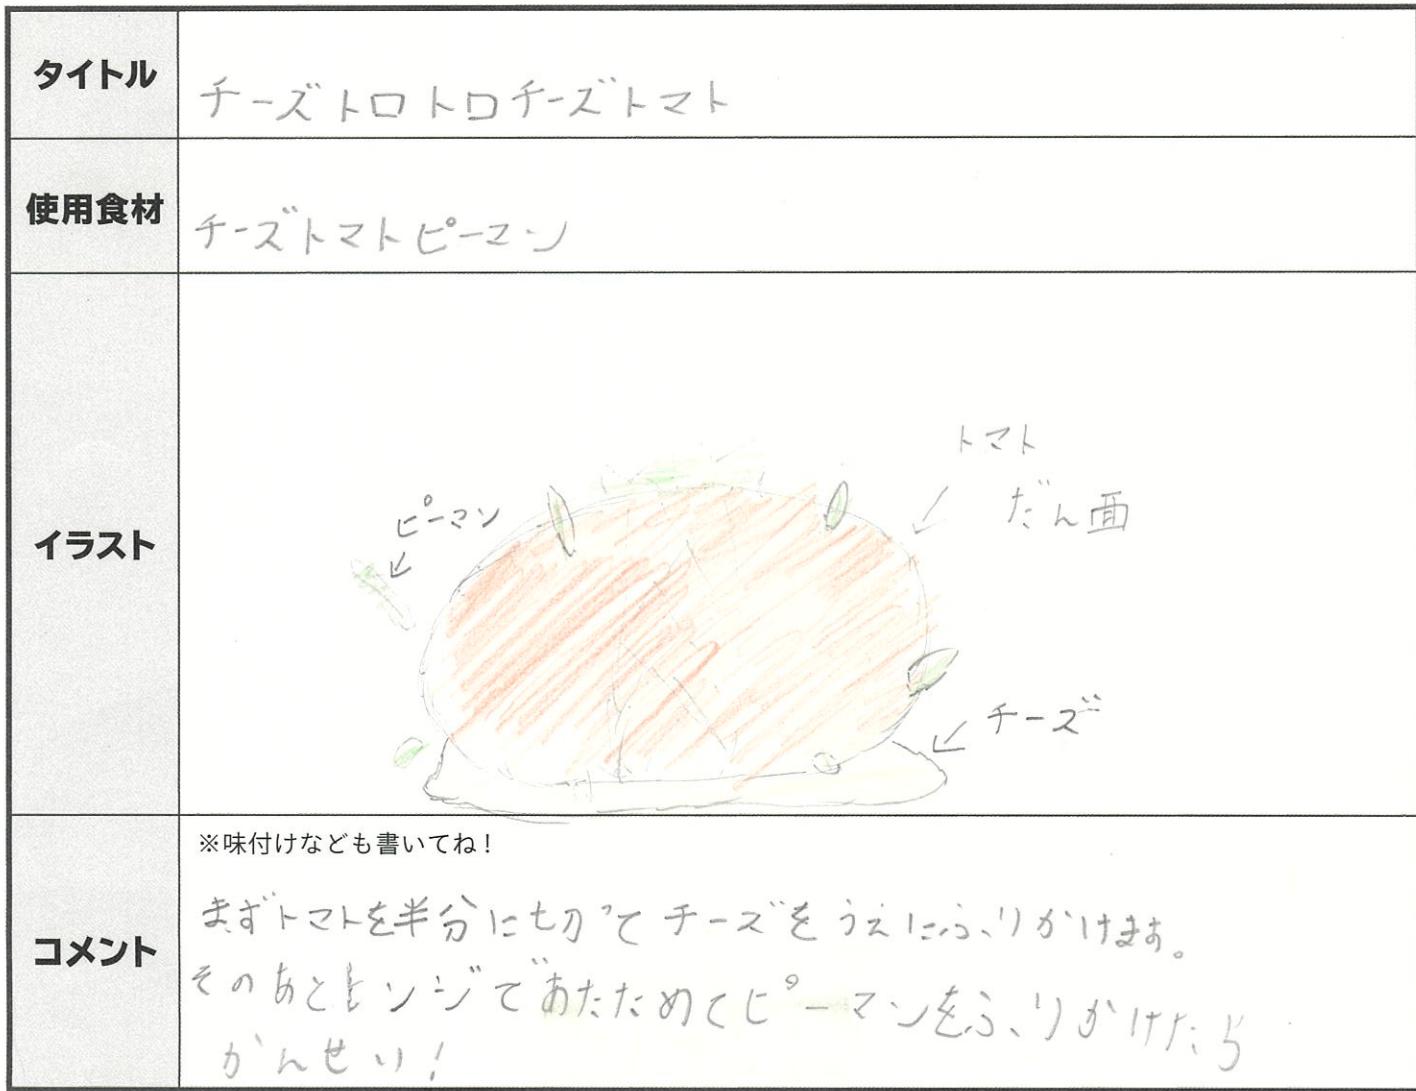 タイトル
チーズトロトロチーズトマト
使用食材
チーズトマトピーマン
イラスト
トマト
だん面
ピーマン
チーズ
コメント
※味付けなども書いてね!
まずトマトを半分に切ってチーズをうえにふりかけます。
そのあとレンジであたためてピーマンをふりかけたら
かんせい!